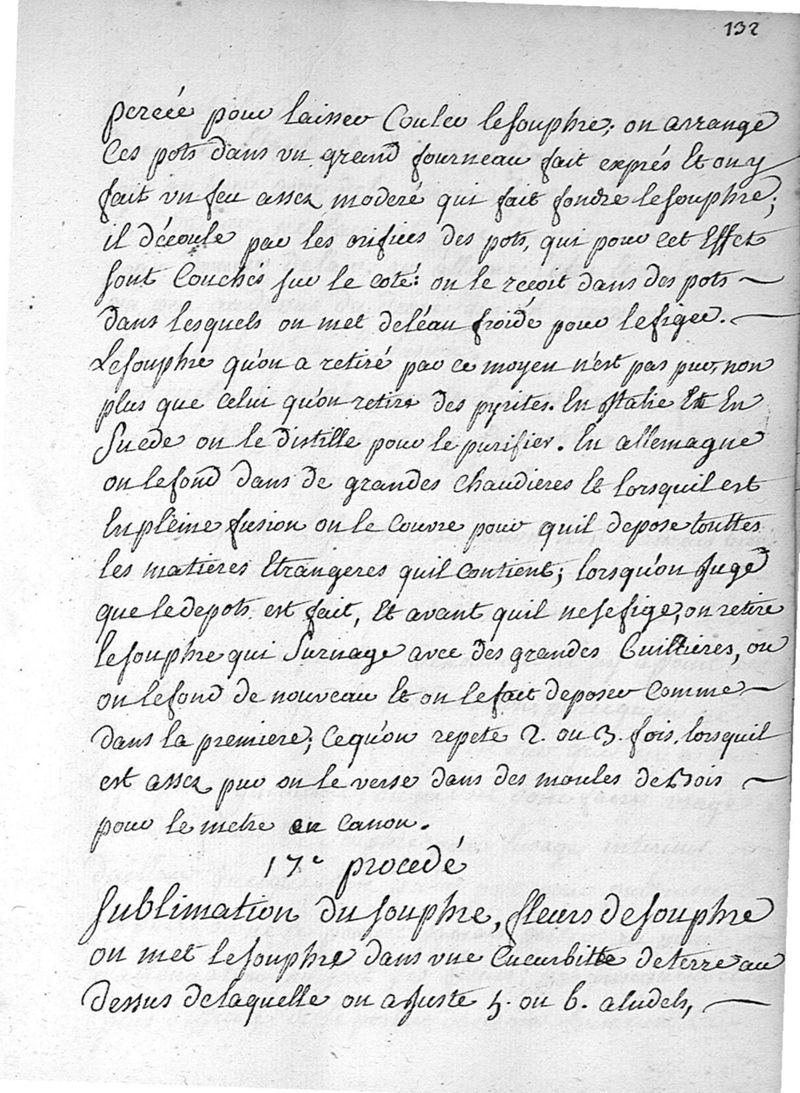 132
percée pour laisser Couler le souphre; on arrange
Ces pots dans un grand fourneau fait exprés Et on y
fait un feu assez moderé qui fait fondre le souphre;
il découle par les orifices des pots, qui pour cet Effet
sont Couchés sur le coté: on le recoit dans des pots
dans lesquels on met de léau froide pour le figer.
Le souphre qu'on a retiré par ce moyen n'est pas pur, non
plus que celui qu'on retire des pyrites. En Italie Et En
Suede on le distille pour le purifier. En allemagne
on le fond dans de grandes chaudieres Et lorsquil est
En pleine fusion on le couvre pour quil depose touttes
les matieres Etrangeres quil contient; lorsqu'on Juge
que le depots est fait, Et avant quil ne se fige, on retire
le souphre qui Surnage avec des grandes Cuillieres, ou
on le fond de nouveau Et on le fait deposer comme
dans la premiere; Ce qu'on repete 2. ou 3. fois, lorsquil
est assez pur on le verse dans des moules de Bois
pour le metre en canon.
17e procedé
Sublimation du souphre, fleurs de souphre
on met le souphre dans une Cucurbitte de terre au
Dessus de laquelle on ajuste 5. ou 6. aludels,